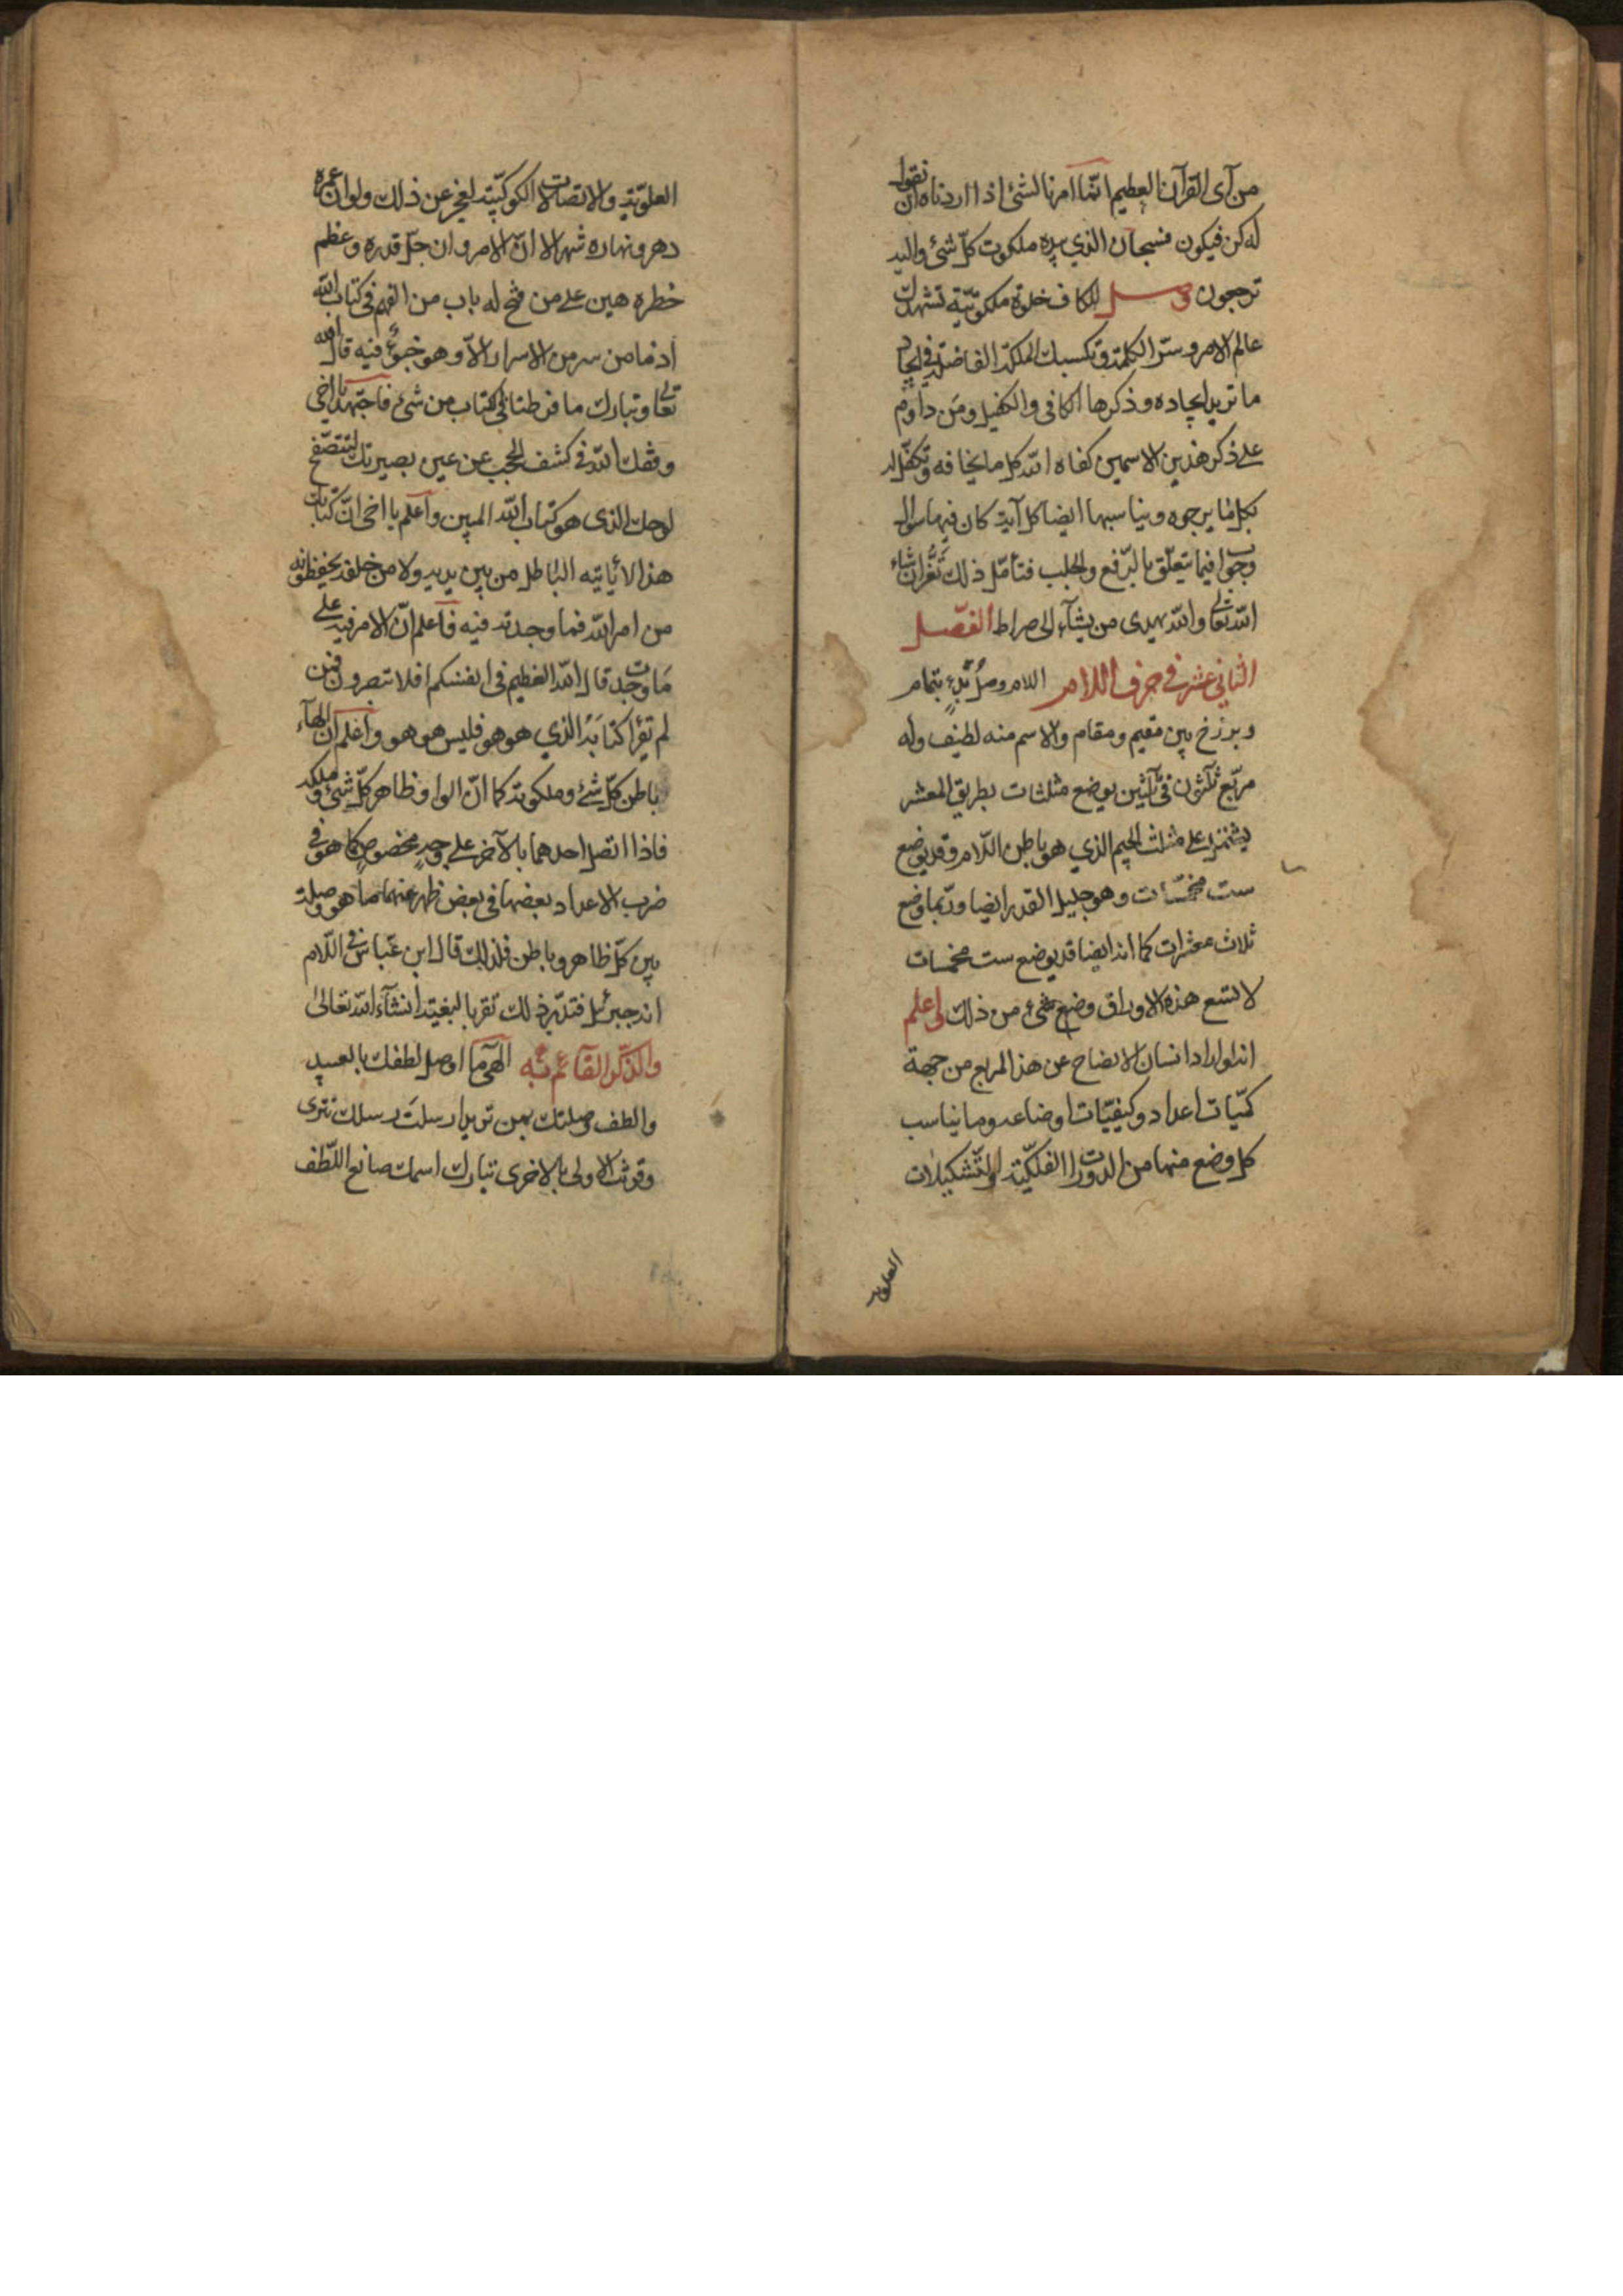 من آى القرآن العظيم انّما امرنا لشئ اذا اردناه ان نقول
له كن فيكون فسبحان الذي بيده ملكوت كلّ شئ واليه
ترجعون وصل للكاف خلوة ملكوتيّة تشهدك
عالم الامر وسرّ الكلمة وتكسبك الملكة الفاضلة في ايجاد
ما تريد ايجاده وذكرها الكافى والكفيل ومن داوم
على ذكر هذين الاسمين كفاه الله كل ما يخافه وتكفّل له
بكل ما يرجوه ويناسبها ايضا كل آية كان فيها سوال
وجواب فيما يتعلّق بالدّفع والجلب فتأمّل ذلك ان شاء
الله تعالى والله يهدى من يشآء الى صراط الفصل
الثانى عشر فى حرف اللام اللام وصل بتمام
وبرزخ بين مقيم ومقام والاسم منه لطيف وله
مربّع ثلثون في ثلثين يوضع مثلثات بطريق المعشر
على مثلث الجيم الذي هو باطن اللّام وقد يوضع
ست مخمّسات وهو جليل القدر ايضا وربّما وضع
ثلاث معشرات كما انه ايضا قد يوضع ست مخمسات
لا تسع هذه الاوراق وضع شئ من ذلك اعلم
انه لو اراد انسان الايضاح عن هذا المربع من جهة
كمّيات اعداده وكيفيّات اوضاعه وما يناسب
كل وضع منها من الدورات الفلكيّة والتّشكيلات
العلويّة
العلويّة والاتصالات الكوكبيّة لعجز عن ذلك ولو ان عمره
دهر ونهاره شهر الا انّ الامر وان جلّ قدره وعظم
خطره هين على من فتح له باب من الفهم فى كتاب الله
اذ ما من سر من الاسرار الاّ وهو مخبوّ فيه قال الله
تعالى وتبارك ما فرطنا فى الكتاب من شئ فاجتهد يا اخى
وفقك الله فى كشف الحجب عن عين بصيرتك لتتصفّح
لوحك الذى هو كتاب الله المبين واعلم يا اخى انّ كتابك
هذا لا يأتيه الباطل من بين يديه ولا من خلفه يحفظونه
من امر الله فما وجدته فيه فاعلم انّ الامر فيه على
ما وجدت قال الله العظيم فى انفسكم افلا تبصرون فمن
لم يقرا كتابه الذي هو هو فليس هو هو واعلم ان الهآء
باطن كلّ شئ وملكوته كما انّ الواو ظاهر كلّ شئ وملكه
فاذا اتصل احدهما بالآخر على وجه مخصوص كما هو في
ضرب الاعداد بعضها فى بعض ظهر عنهما ما هو وصلة
بين كلّ ظاهر وباطن فلذلك قال ابن عبّاس فى اللّام
انه جبرئيل فتدبّر ذلك تقر بالبغية انشآء الله تعالى
والذّكر القآئم به الهى ما اوصل لطفك بالعبيد
والطف وصلتك بمن تريد ارسلت رسلك تترى
وقرنت الاولى بالاخرى تبارك اسمك صانع اللّطف